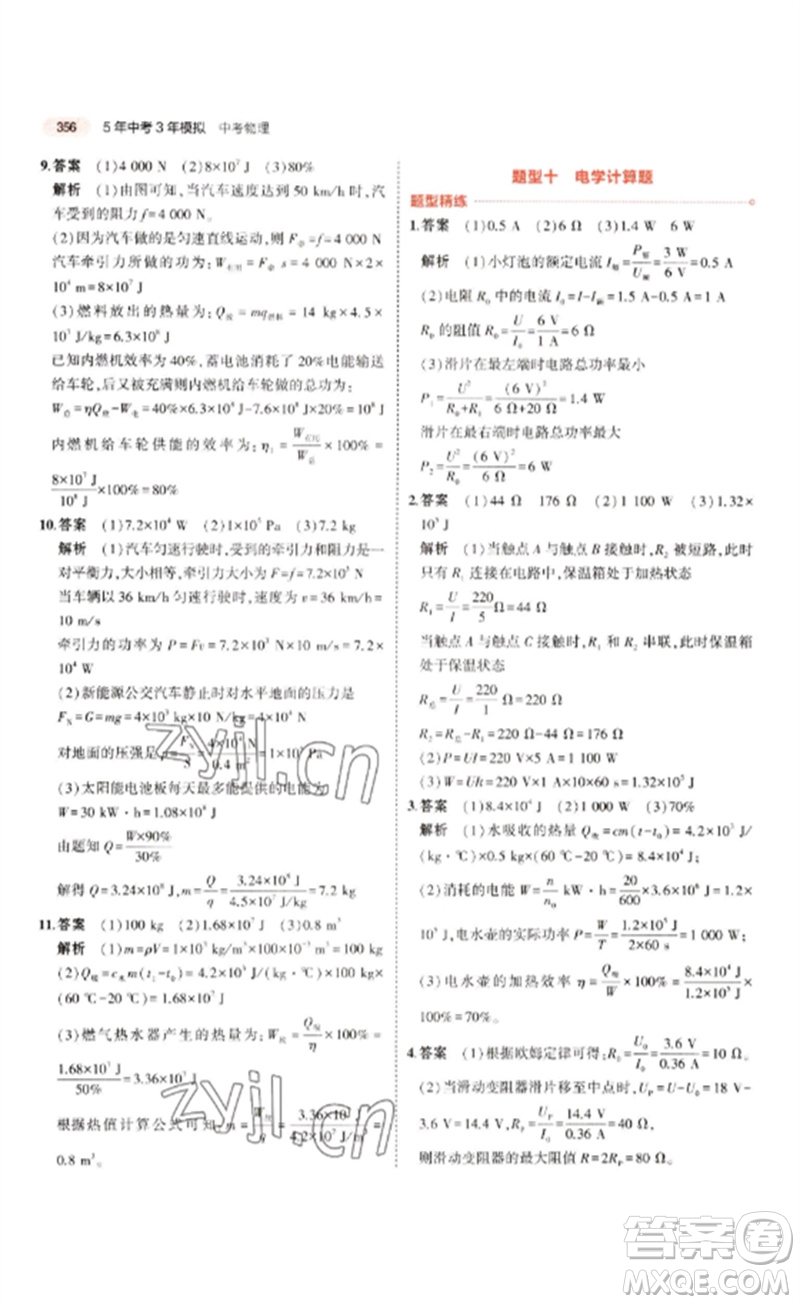 356 5年中考3年模拟 中考物理
9.答案 (1)4 000 N (2)8×10⁷ J (3)80%
解析 (1)由图可知,当汽车速度达到 50 km/h 时,汽
车受到的阻力 f=4 000 N。
(2)因为汽车做的是匀速直线运动,所以 F牵=f
汽车牵引力所做的功为:W有用=F牵 s=4 000 N×2×
10⁴ m=8×10⁷ J
(3)燃料放出的热量为:Q放=mq燃料=14 kg×4.5×
10⁷ J/kg=6.3×10⁸ J
已知内燃机效率为40%,蓄电池消耗了20%电能输送
给车轮,后又被充满则内燃机给车轮做的总功为:
W总=ηQ放-W电=40%×6.3×10⁸ J-7.6×10⁸ J×20%=10⁸ J
内燃机给车轮供能的效率为:η₁=W有用/W总×100%=
8×10⁷ J/10⁸ J×100%=80%
10.答案 (1)7.2×10⁴ W (2)1×10⁵ Pa (3)7.2 kg
解析 (1)汽车匀速行驶时,受到的牵引力和阻力是一
对平衡力,大小相等
当车辆以 36 km/h 匀速行驶时,速度为 v=36 km/h=
10 m/s
牵引力的功率为 P=Fv=7.2×10³ N×10 m/s=7.2×
10⁴ W
(2)新能源公交汽车静止时对水平地面的压力是
F_N=G=mg=4×10³ kg×10 N/kg=4×10⁴ N
对地面的压强是 p=F_N/S=4×10⁴ N/0.4 m²=1×10⁵ Pa
(3)太阳能电池板每天最多能提供的电能为
W=30 kW·h=1.08×10⁸ J
由题知 Q=W×90%/30%
解得 Q=3.24×10⁸ J,m=Q/q=3.24×10⁸ J/4.5×10⁷ J/kg=7.2 kg
11.答案 (1)100 kg (2)1.68×10⁷ J (3)0.8 m³
解析 (1)m=ρV=1×10³ kg/m³×100×10⁻³ m³=100 kg
(2)Q吸=c水m(t₁-t₀)=4.2×10³ J/(kg·℃)×100 kg×
(60 ℃-20 ℃)=1.68×10⁷ J
(3)燃气热水器产生的热量为:W放=Q吸/η×100%=
1.68×10⁷ J/50%=3.36×10⁷ J
根据热值计算公式可知,m=W放/q=3.36×10⁷ J/4.2×10⁷ J/m³=
0.8 m³。
题型十 电学计算题
题型精练
1.答案 (1)0.5 A (2)6 Ω (3)1.4 W 6 W
解析 (1)小灯泡的额定电流 I额=P额/U额=3 W/6 V=0.5 A
(2)电阻 R₀ 中的电流 I₀=I-I额=1.5 A-0.5 A=1 A
R₀ 的阻值 R₀=U/I₀=6 V/1 A=6 Ω
(3)滑片在最左端时电路总功率最小
P₁=U²/(R₀+R₁)=(6 V)²/(6 Ω+20 Ω)=1.4 W
滑片在最右端时电路总功率最大
P₂=U²/R₀=(6 V)²/6 Ω=6 W
2.答案 (1)44 Ω 176 Ω (2)1 100 W (3)1.32×
10⁵ J
解析 (1)当触点 A 与触点 B 接触时,R₂ 被短路,此时
只有 R₁ 连接在电路中,保温箱处于加热状态
R₁=U/I=220/5 Ω=44 Ω
当触点 A 与触点 C 接触时,R₁ 和 R₂ 串联,此时保温箱
处于保温状态
R总=U/I=220/1 Ω=220 Ω
R₂=R总-R₁=220 Ω-44 Ω=176 Ω
(2)P=UI=220 V×5 A=1 100 W
(3)W=UIt=220 V×1 A×600 s=1.32×10⁵ J
3.答案 (1)8.4×10⁴ J (2)1 000 W (3)70%
解析 (1)水吸收的热量 Q吸=cm(t-t₀)=4.2×10³ J/
(kg·℃)×0.5 kg×(60 ℃-20 ℃)=8.4×10⁴ J
(2)消耗的电能 W=n/n₀ kW·h=20/600×3.6×10⁶ J=1.2×
10⁵ J,电水壶的实际功率 P=W/T=1.2×10⁵ J/2×60 s=1 000 W
(3)电水壶的加热效率 η=Q吸/W×100%=8.4×10⁴ J/1.2×10⁵ J×
100%=70%。
4.答案 (1)根据欧姆定律可得:R₀=U₀/I₀=3.6 V/0.36 A=10 Ω。
(2)当滑动变阻器滑片移至中点时,U_P=U-U₀=18 V-
3.6 V=14.4 V,R_P=U_P/I₀=14.4 V/0.36 A=40 Ω,
则滑动变阻器的最大阻值 R=2R_P=80 Ω。
zyjl.cn
zyjl.cn
答案圈
MXQE.COM